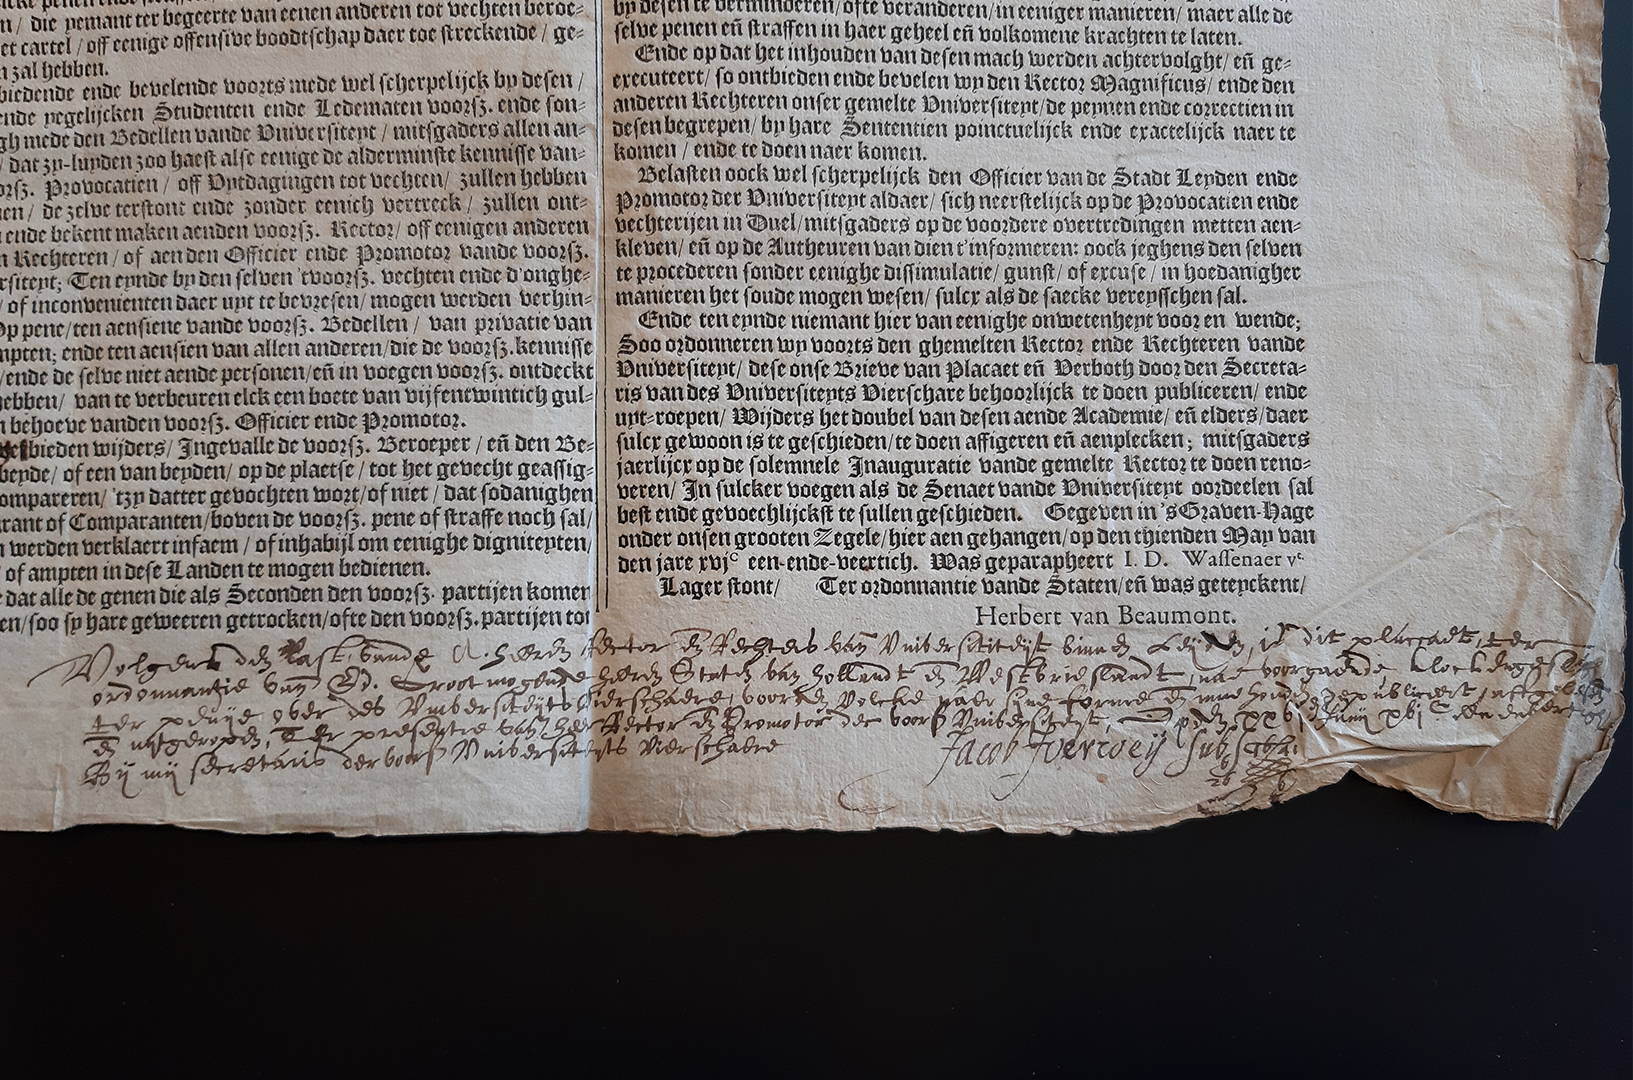 n/ die yemant ter begeerte van eenen anderen tot vechten beroe-
et cartel / off eenige offensive boodtschap daer toe streckende / ge-
n zal hebben.
biedende ende bevelende voorts mede wel scherpelijck by desen /
ende yegelijcken Studenten ende Ledematen voorsz. ende son-
gh mede den Bedellen vande Vniversiteyt / mitsgaders allen an-
/ dat zy-luyden zoo haest alse eenige de alderminste kennisse van-
orsz. Provocatien / off Vytdagingen tot vechten/ zullen hebben
en/ de zelve terstont ende zonder eenich vertreck / zullen ont-
ende bekent maken aenden voorsz. Rector/ off eenigen anderen
n Rechteren / of aen den Officier ende Promotor vande voorsz.
rsiteyt; Ten eynde by den selven 'tvoorsz. vechten ende d'onghe-
/ of inconvenienten daer uyt te bevresen/ mogen werden verhin-
Op pene/ten aensiene vande voorsz. Bedellen / van privatie van
mpten; ende ten aensien van allen anderen/die de voorsz. kennisse
/ende de selve niet aende personen/eñ in voegen voorsz. ontdeckt
hebben/ van te verbeuren elck een boete van vijfentwintich gul-
n behoeve vanden voorsz. Officier ende Promotor.
bieden wijders/ Ingevalle de voorsz. Beroeper / eñ den Be-
beyde/ of een van beyden/ op de plaetse / tot het gevecht geassig-
ompareren/ 'tzy datter gevochten wort/of niet / dat sodanighen
rant of Comparanten/boven de voorsz. pene of straffe noch sal/
n werden verklaert infaem / of inhabijl om eenighe digniteyten/
of ampten in dese Landen te mogen bedienen.
dat alle de genen die als Seconden den voorsz. partijen komen
en/soo sy hare geweeren getrocken/ofte den voorsz. partijen tot
by desen te verminderen/ofte veranderen/in eeniger manieren/ maer alle de
selve penen eñ straffen in haer geheel eñ volkomene krachten te laten.
Ende op dat het inhouden van desen mach werden achtervolght/ eñ ge-
executeert/ so ontbieden ende bevelen wy den Rector Magnificus/ ende den
anderen Rechteren onser gemelte Vniversiteyt/de peynen ende correctien in
desen begrepen/ by hare Sententien poinctuelijck ende exactelijck naer te
komen / ende te doen naer komen.
Belasten oock wel scherpelijck den Officier van de Stadt Leyden ende
Promotor der Vniversiteyt aldaer/ sich neerstelijck op de Provocatien ende
vechterijen in Duel/mitsgaders op de voordere overtredingen metten aen-
kleven/ eñ op de Autheuren van dien t'informeren: oock jeghens den selven
te procederen sonder eenighe dissimulatie/ gunst/ of excuse/ in hoedanigher
manieren het soude mogen wesen/ sulcx als de saecke vereysschen sal.
Ende ten eynde niemant hier van eenighe onwetenheyt voor en wende;
Soo ordonneren wy voorts den ghemelten Rector ende Rechteren vande
Vniversiteyt/ dese onse Brieve van Placaet eñ Verboth door den Secreta-
ris van des Vniversiteyts Vierschare behoorlijck te doen publiceren/ ende
uyt-roepen/ Wijders het doubel van desen aende Academie/ eñ elders/daer
sulcx gewoon is te geschieden/te doen affigeren eñ aenplecken; mitsgaders
jaerlijcx op de solemnele Inauguratie vande gemelte Rector te doen reno-
veren/ In sulcker voegen als de Senaet vande Vniversiteyt oordeelen sal
best ende gevoechlijckst te sullen geschieden. Gegeven in 'sGraven-Hage
onder onsen grooten Zegele/hier aen gehangen/op den thienden May van
den jare xvjc een-ende-veertich. Was geparapheert I. D. Wassenaer vt.
Lager stont/ Ter ordonnantie vande Staten/eñ was geteyckent/
Herbert van Beaumont.
Volgens den last vande heeren Rector eñ Rechters vañ Vniversiteijt binnen Leijden, is dit placcaet, ter
ordonnantie vañ Groot mogende heeren Staten van Hollandt eñ Westvrieslandt, na voorgaende klockengeslach
ter puije over des Vniversiteijts vierschaere, voor den volcke
eñ uijtgeropen, Ter presentie vañ heer Rector eñ Promotor der voors Vniversiteijt,
Bij mij secretaris der voors Vniversiteijts Vierschaere
Jacob